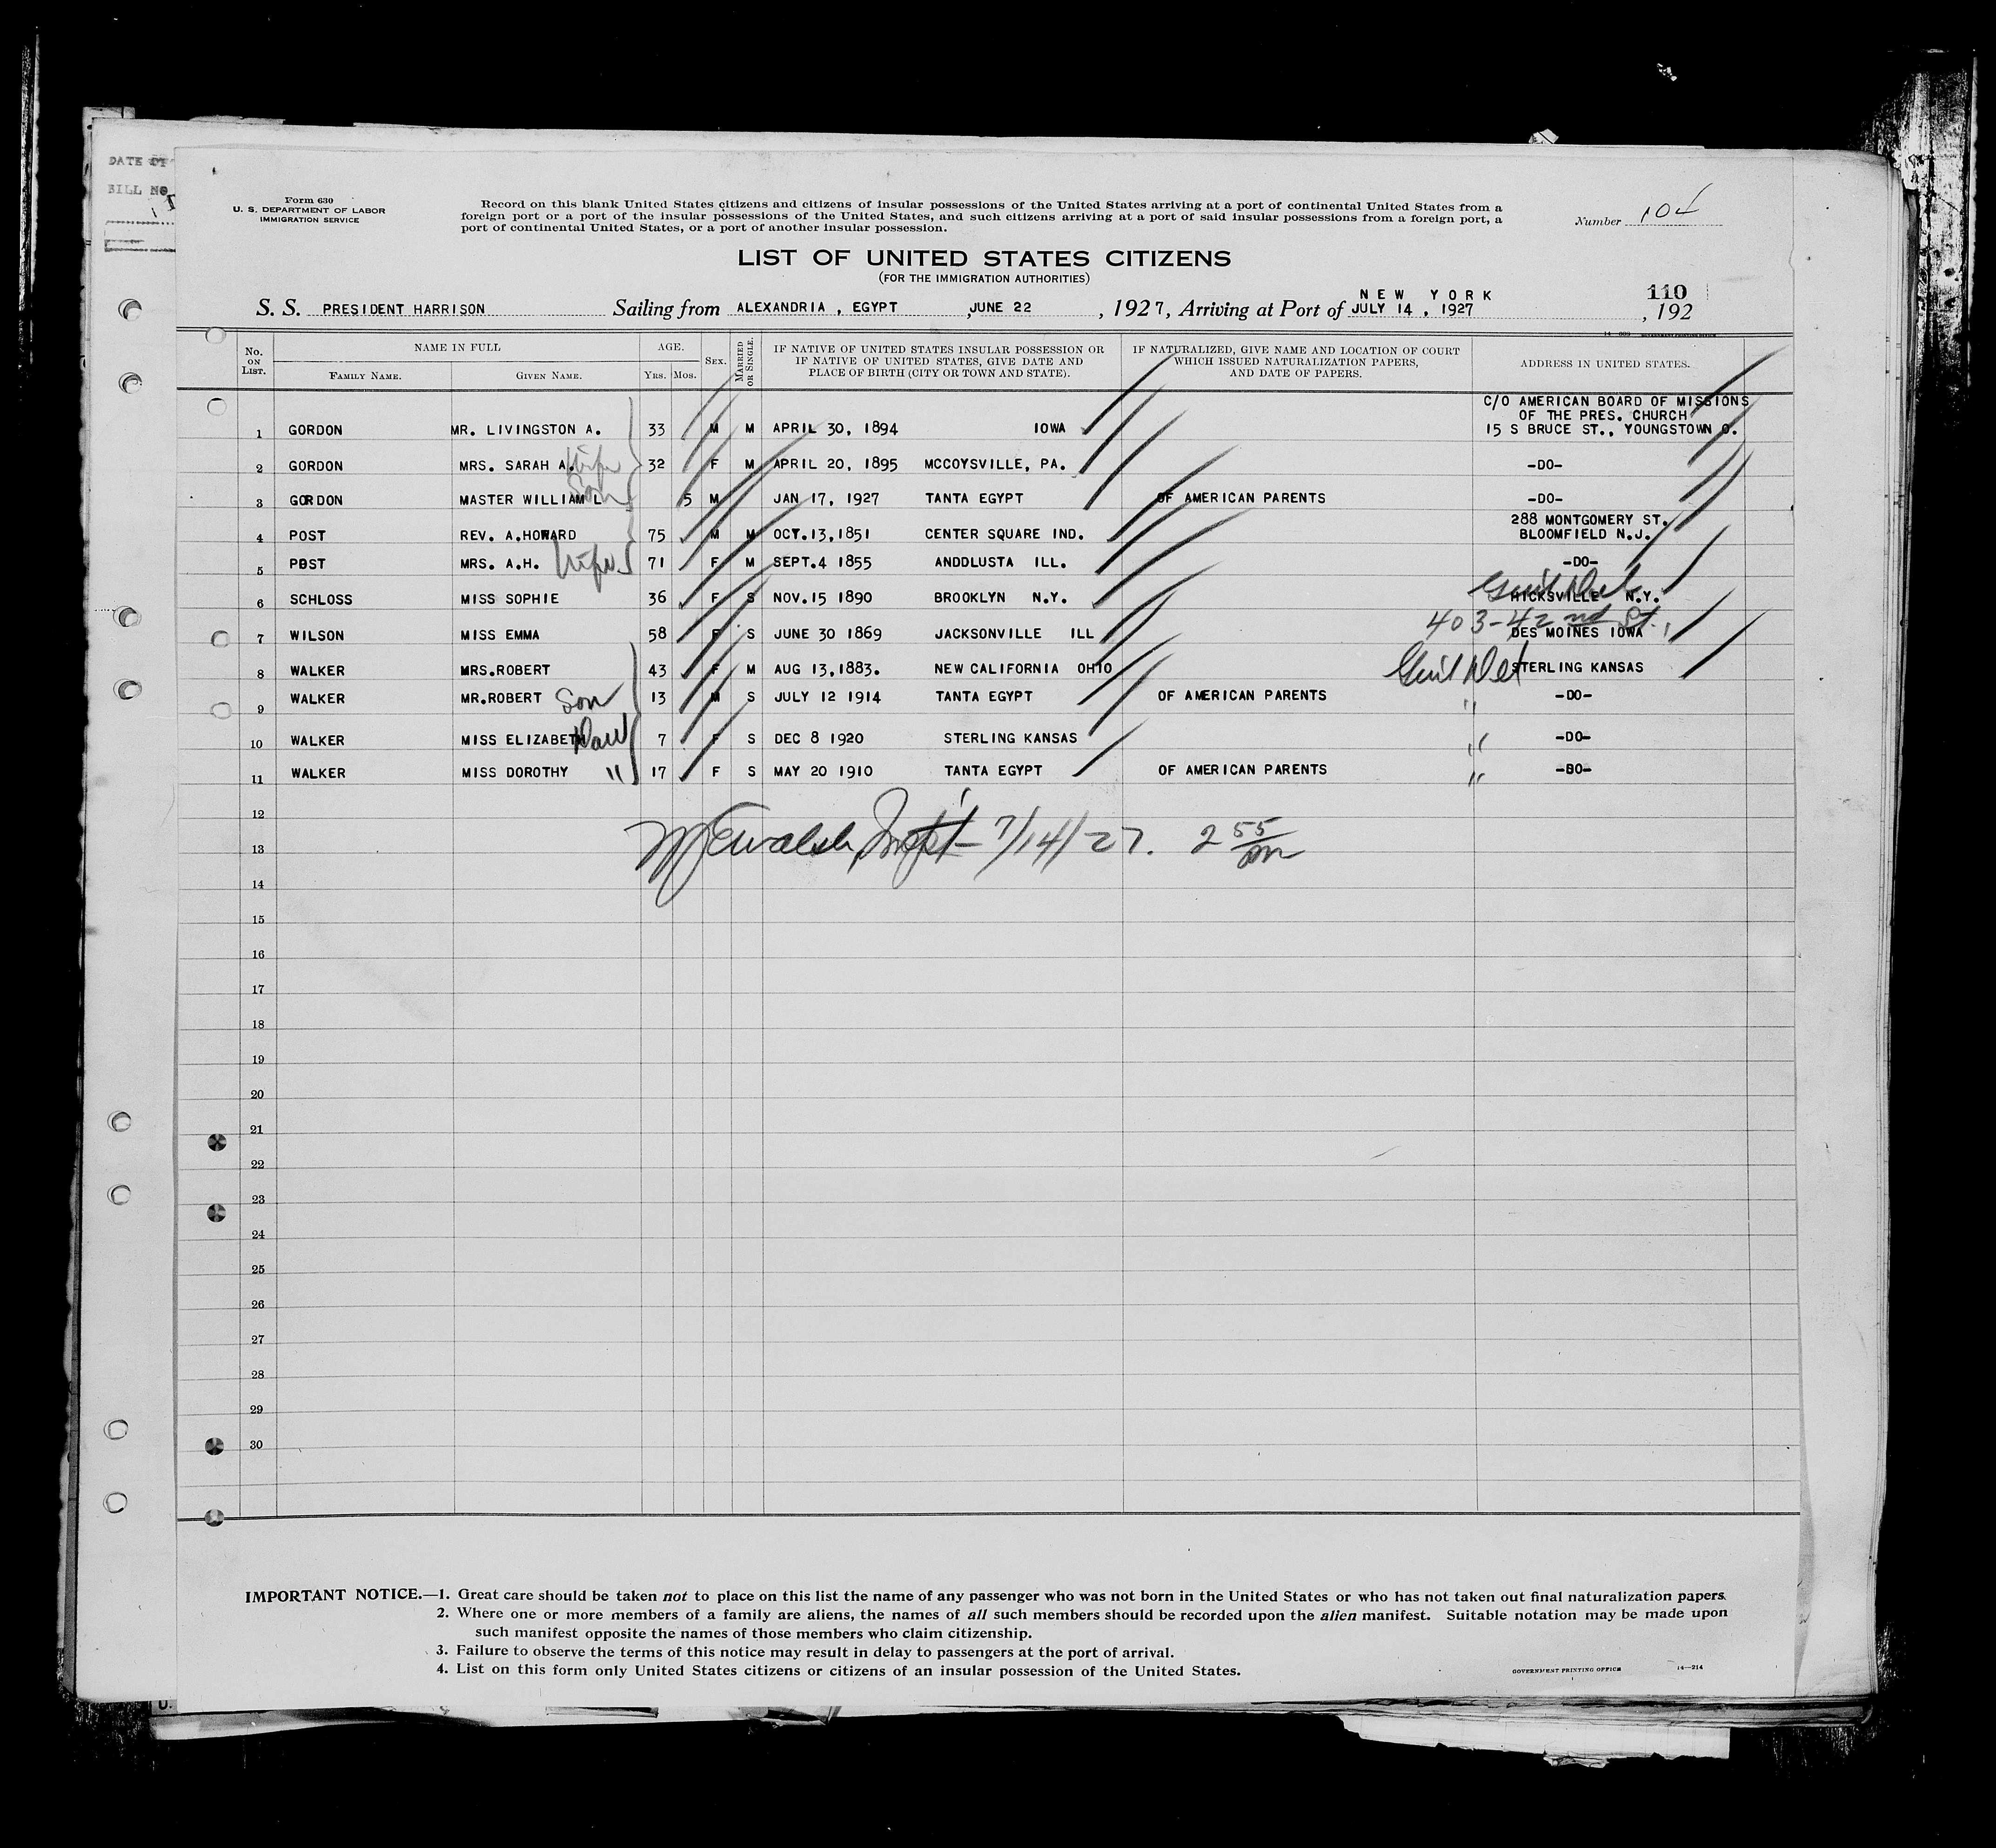 DATE OF
BILL NO
Form 630
U. S. DEPARTMENT OF LABOR
IMMIGRATION SERVICE
Record on this blank United States citizens and citizens of insular possessions of the United States arriving at a port of continental United States from a
foreign port or a port of the insular possessions of the United States, and such citizens arriving at a port of said insular possessions from a foreign port, a
port of continental United States, or a port of another insular possession.
Number 104
LIST OF UNITED STATES CITIZENS
(FOR THE IMMIGRATION AUTHORITIES)
110
S. S. PRESIDENT HARRISON Sailing from ALEXANDRIA , EGYPT ,JUNE 22 , 1927, Arriving at Port of NEW YORK JULY 14 , 1927 , 192
No. ON LIST. NAME IN FULL FAMILY NAME. GIVEN NAME. AGE. YRS. MOS. SEX. MARRIED OR SINGLE. IF NATIVE OF UNITED STATES INSULAR POSSESSION OR IF NATIVE OF UNITED STATES, GIVE DATE AND PLACE OF BIRTH (CITY OR TOWN AND STATE). IF NATURALIZED, GIVE NAME AND LOCATION OF COURT WHICH ISSUED NATURALIZATION PAPERS, AND DATE OF PAPERS. ADDRESS IN UNITED STATES.
1 GORDON MR. LIVINGSTON A. 33 M M APRIL 30, 1894 IOWA C/O AMERICAN BOARD OF MISSIONS OF THE PRES. CHURCH 15 S BRUCE ST., YOUNGSTOWN O.
2 GORDON MRS. SARAH A. Wife 32 F M APRIL 20, 1895 MCCOYSVILLE, PA. -DO-
3 GORDON MASTER WILLIAM L Son 5 M JAN 17, 1927 TANTA EGYPT OF AMERICAN PARENTS -DO-
4 POST REV. A.HOWARD 75 M M OCT.13,1851 CENTER SQUARE IND. 288 MONTGOMERY ST. BLOOMFIELD N.J.
5 POST MRS. A.H. Wife 71 F M SEPT.4 1855 ANDDLUSTA ILL. -DO-
6 SCHLOSS MISS SOPHIE 36 F S NOV.15 1890 BROOKLYN N.Y. HICKSVILLE N.Y.
7 WILSON MISS EMMA 58 F S JUNE 30 1869 JACKSONVILLE ILL 403-42nd St., DES MOINES IOWA
8 WALKER MRS.ROBERT 43 F M AUG 13,1883. NEW CALIFORNIA OHIO STERLING KANSAS
9 WALKER MR.ROBERT Son 13 M S JULY 12 1914 TANTA EGYPT OF AMERICAN PARENTS " -DO-
10 WALKER MISS ELIZABETH Dau 7 F S DEC 8 1920 STERLING KANSAS " -DO-
11 WALKER MISS DOROTHY " 17 F S MAY 20 1910 TANTA EGYPT OF AMERICAN PARENTS " -DO-
12
13 Walsh, Inspt 7/14/27. 2 55 pm
14
15
16
17
18
19
20
21
22
23
24
25
26
27
28
29
30
IMPORTANT NOTICE.—1. Great care should be taken not to place on this list the name of any passenger who was not born in the United States or who has not taken out final naturalization papers.
2. Where one or more members of a family are aliens, the names of all such members should be recorded upon the alien manifest. Suitable notation may be made upon
such manifest opposite the names of those members who claim citizenship.
3. Failure to observe the terms of this notice may result in delay to passengers at the port of arrival.
4. List on this form only United States citizens or citizens of an insular possession of the United States.
GOVERNMENT PRINTING OFFICE 14—214